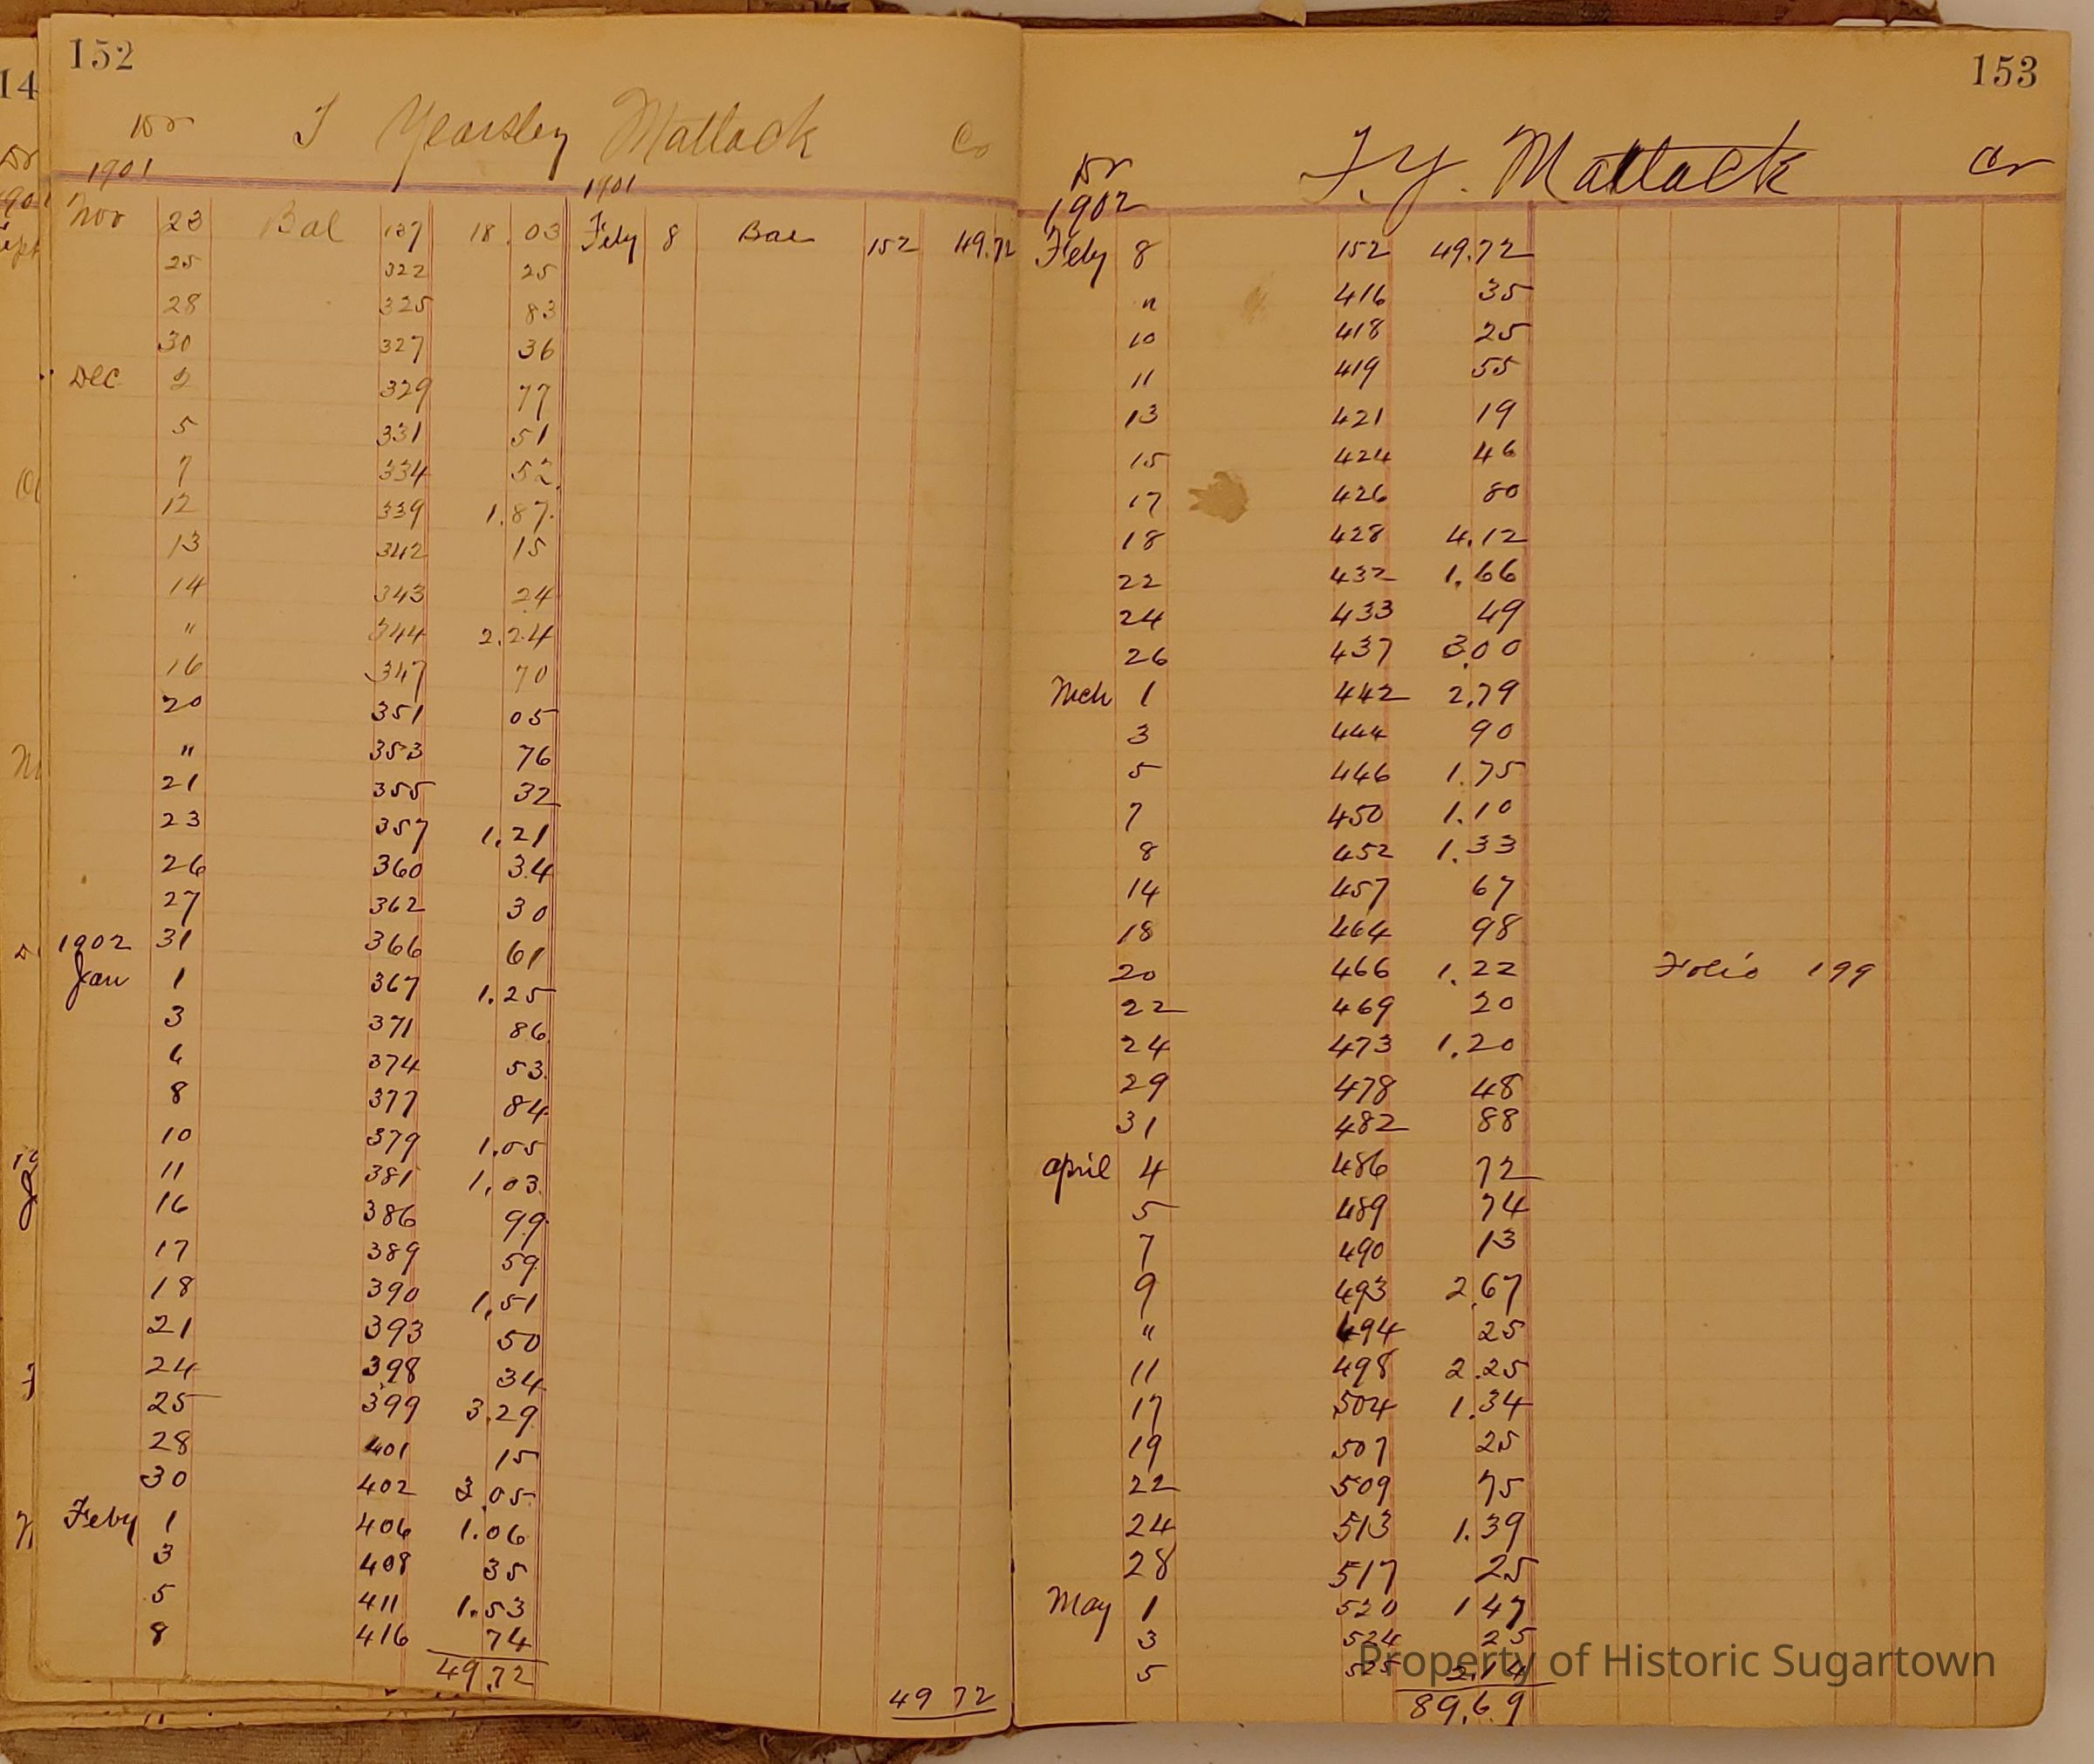 152
Dr J Yearsley Matlack Cr
1901 1901
Nov 23 Bal 137 18.03 Feby 8 Bal 152 49.72
25 322 25
28 325 83
30 327 36
Dec 2 329 77
5 331 51
7 334 52
12 339 1.87
13 342 15
14 343 24
" 344 2.24
16 347 70
20 351 05
" 353 76
21 355 32
23 357 1.21
26 360 34
27 362 30
1902 31 366 61
Jan 1 367 1.25
3 371 86
4 374 53
8 377 84
10 379 1.05
11 381 1.03
16 386 99
17 389 59
18 390 1.51
21 393 50
24 398 34
25 399 3.29
28 401 15
30 402 3.05
Feby 1 406 1.06
3 408 35
5 411 1.53
8 416 74
49.72
49 72
153
Dr J. Y. Matlack Cr
1902
Feby 8 152 49.72
" 416 35
10 418 25
11 419 55
13 421 19
15 424 46
17 426 80
18 428 4.12
22 432 1.66
24 433 49
26 437 3.00
Mch 1 442 2.79
3 444 90
5 446 1.75
7 450 1.10
8 452 1.33
14 457 67
18 464 98
20 466 1.22 Folio 199
22 469 20
24 473 1.20
29 478 48
31 482 88
April 4 486 72
5 489 74
7 490 13
9 493 2.67
" 494 25
11 498 2.25
17 504 1.34
19 507 25
22 509 75
24 513 1.39
28 517 25
May 1 520 1 47
3 524 25
5 525 2.14
89.69
Property of Historic Sugartown